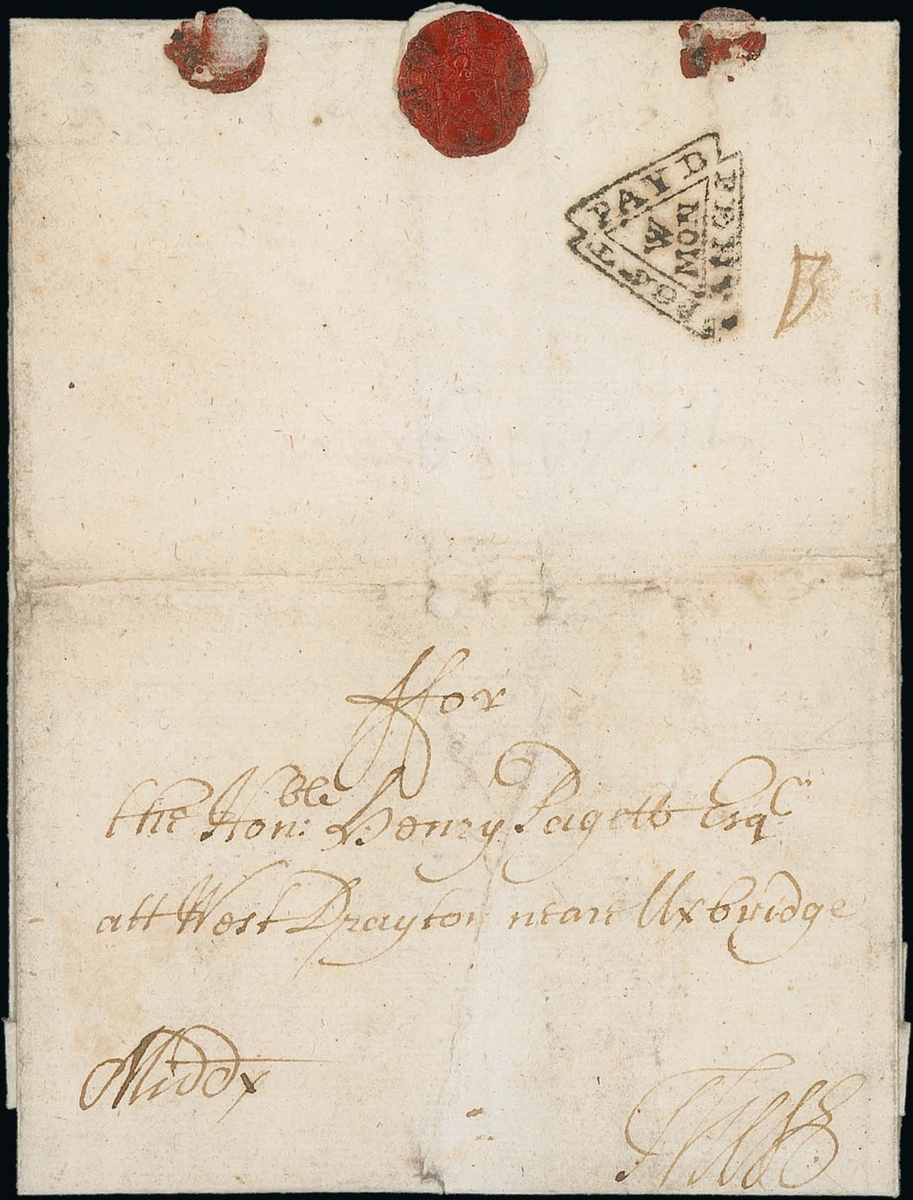 PAYD
PENNY
POST
W
MON
B
ffor
the Hon:ble Henry Pagett Esqr
att West Drayton neare Uxbridge
Middx